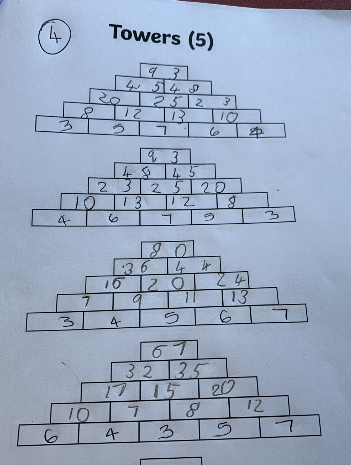 4 Towers (5)
93
45 48
20 25 23
8 12 13 10
3 5 7 6 4
93
48 45
23 25 20
10 13 12 8
4 6 7 5 3
80
36 44
16 20 24
7 9 11 13
3 4 5 6 7
67
32 35
17 15 20
10 7 8 12
6 4 3 5 7